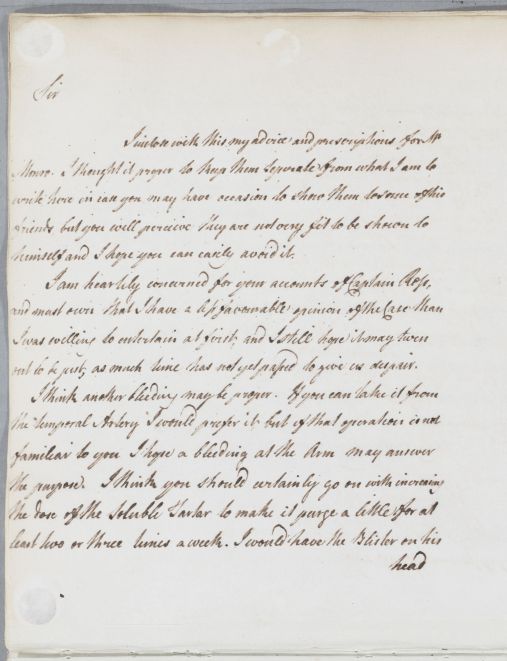 Sir
I inclose with this my advice and prescriptions for Mr
Monro. I thought it proper to keep them separate from what I am to
write here in case you may have occasion to show them to some of his
friends, but you will perceive they are not very fit to be shown to
himself and I hope you can easily avoid it.
I am heartily concerned for your accounts of Captain Ross,
and must own that I have a less favourable opinion of the Case than
I was willing to entertain at first, and I still hope it may turn
out to be just, as much time has not yet passed to give us despair.
I think another bleeding may be proper. If you can take it from
the temporal Artery I would prefer it but if that operation is not
familiar to you I hope a bleeding at the Arm may answer
the purpose. I think you should certainly go on with increasing
the dose of the Soluble Tartar to make it purge a little for at
least two or three times a week. I would have the Blister on his
head